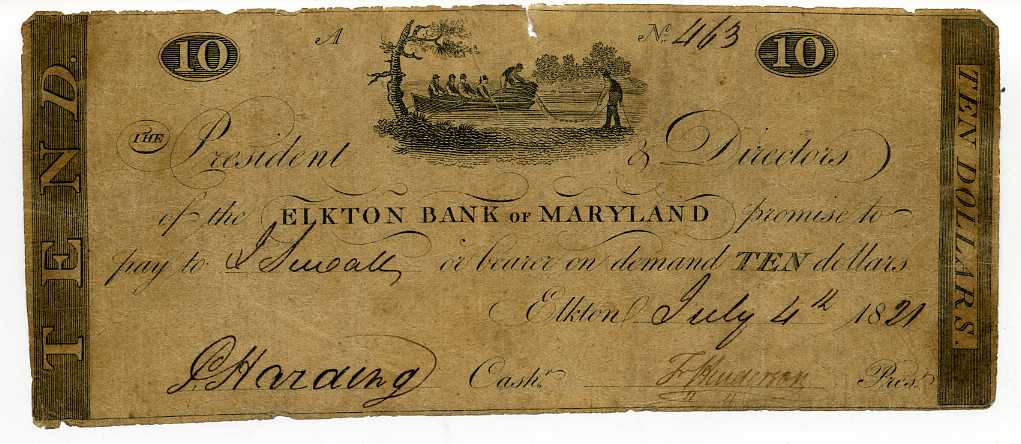 10 A No. 463 10
THE President & Directors
of the ELKTON BANK OF MARYLAND promise to
pay to J Sewall or bearer on demand TEN dollars
Elkton July 4th 1821
Harding Cashr. Henderson Prest.
TEN D.
TEN DOLLARS.